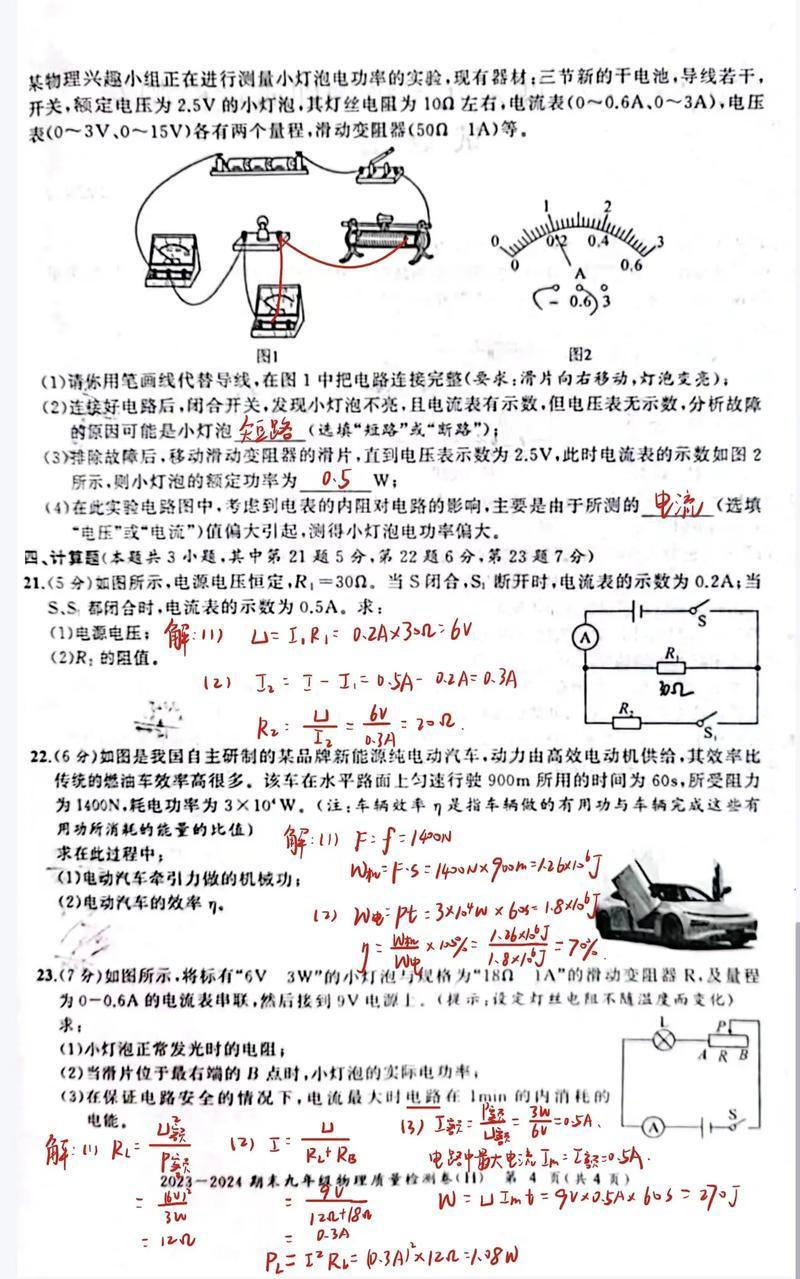 某物理兴趣小组正在进行测量小灯泡电功率的实验,现有器材:三节新的干电池,导线若干,
开关,额定电压为2.5V的小灯泡,其灯丝电阻为10Ω左右,电流表(0～0.6A、0～3A),电压
表(0～3V、0～15V)各有两个量程,滑动变阻器(50Ω 1A)等。
0 1 2 3
0 0.2 0.4 0.6
A
- 0.6 3
图1 图2
(1)请你用笔画线代替导线,在图1中把电路连接完整(要求:滑片向右移动,灯泡变亮);
(2)连接好电路后,闭合开关,发现小灯泡不亮,且电流表有示数,但电压表无示数,分析故障
的原因可能是小灯泡 短路 (选填“短路”或“断路”);
(3)排除故障后,移动滑动变阻器的滑片,直到电压表示数为2.5V,此时电流表的示数如图2
所示,则小灯泡的额定功率为 0.5 W;
(4)在此实验电路图中,考虑到电表的内阻对电路的影响,主要是由于所测的 电流 (选填
“电压”或“电流”)值偏大引起,测得小灯泡电功率偏大。
四、计算题(本题共3小题,其中第21题5分,第22题6分,第23题7分)
21.(5分)如图所示,电源电压恒定,R₁=30Ω。当S闭合,S₁断开时,电流表的示数为0.2A;当
S、S₁都闭合时,电流表的示数为0.5A。求:
(1)电源电压; 解:(1) U=I₁R₁=0.2A×30Ω=6V
(2)R₂的阻值。
(2) I₂=I-I₁=0.5A-0.2A=0.3A
R₂=U/I₂=6V/0.3A=20Ω.
S
A
R₁
30Ω
R₂
S₁
22.(6分)如图是我国自主研制的某品牌新能源纯电动汽车,动力由高效电动机供给,其效率比
传统的燃油车效率高很多。该车在水平路面上匀速行驶900m所用的时间为60s,所受阻力
为1400N,耗电功率为3×10⁴W。(注:车辆效率η是指车辆做的有用功与车辆完成这些有
用功所消耗的能量的比值)
解:(1) F=f=1400N
求在此过程中:
W机=F·s=1400N×900m=1.26×10⁶J
(1)电动汽车牵引力做的机械功;
(2)电动汽车的效率η。
(2) W电=Pt=3×10⁴W×60s=1.8×10⁶J
η=W机/W电×100%=1.26×10⁶J/1.8×10⁶J=70%.
23.(7分)如图所示,将标有“6V 3W”的小灯泡与规格为“18Ω 1A”的滑动变阻器R,及量程
为0-0.6A的电流表串联,然后接到9V电源上。(提示:设定灯丝电阻不随温度而变化)
求:
(1)小灯泡正常发光时的电阻;
(2)当滑片位于最右端的B点时,小灯泡的实际电功率;
(3)在保证电路安全的情况下,电流最大时电路在1min的内消耗的
电能。
L P
A R B
A S
解:(1) R_L=U额²/P额
=(6V)²/3W
=12Ω
(2) I=U/(R_L+R_B)
=9V/(12Ω+18Ω)
=0.3A
P_L=I²R_L=(0.3A)²×12Ω=1.08W
(3) I额=P额/U额=3W/6V=0.5A.
电路中最大电流Im=I额=0.5A.
W=UImt=9V×0.5A×60s=270J
2023-2024期末九年级物理质量检测卷(H) 第4页(共4页)